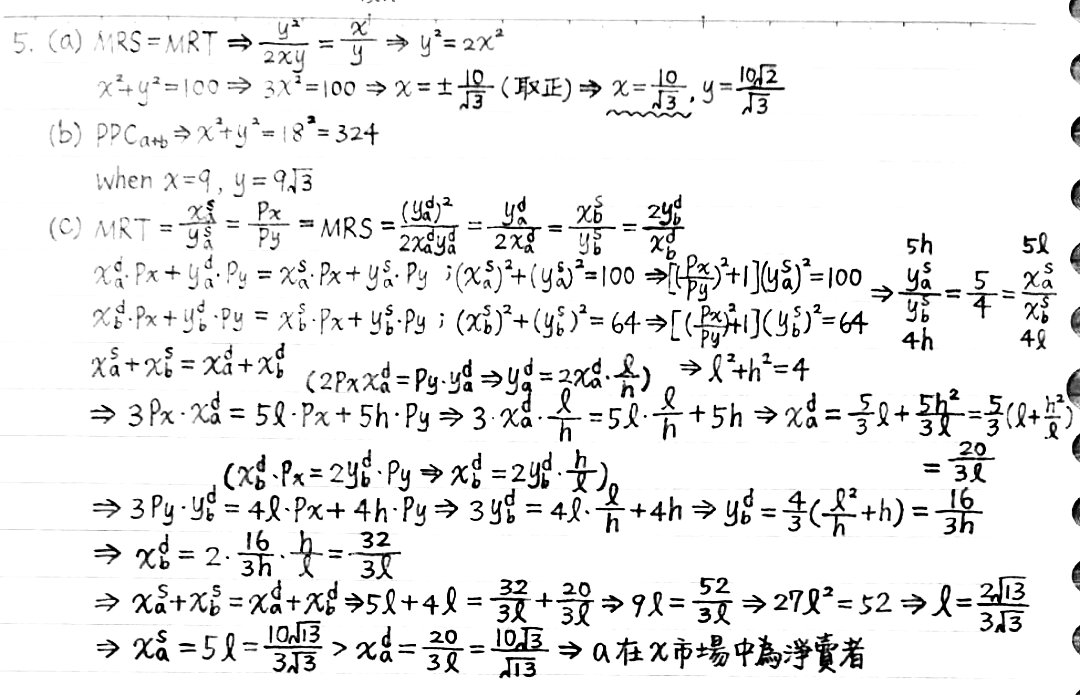 5. (a) MRS = MRT ⇒ y²/2xy = x/y ⇒ y² = 2x²
x²+y²=100 ⇒ 3x²=100 ⇒ x = ± 10/√3 (取正) ⇒ x = 10/√3, y = 10√2/√3
(b) PPCa+b ⇒ x²+y² = 18² = 324
when x=9, y = 9√3
(c) MRT = xₐˢ/yₐˢ = Px/Py = MRS = (yₐᵈ)²/2xₐᵈyₐᵈ = yₐᵈ/2xₐᵈ = x_bˢ/y_bˢ = 2y_bᵈ/x_bᵈ
xₐᵈ·Px + yₐᵈ·Py = xₐˢ·Px + yₐˢ·Py ; (xₐˢ)²+(yₐˢ)²=100 ⇒ [(Px/Py)²+1](yₐˢ)²=100
x_bᵈ·Px + y_bᵈ·Py = x_bˢ·Px + y_bˢ·Py ; (x_bˢ)²+(y_bˢ)²=64 ⇒ [(Px/Py)²+1](y_bˢ)²=64
⇒ 5h yₐˢ/y_bˢ 4h = 5/4 = 5ℓ xₐˢ/x_bˢ 4ℓ
xₐˢ + x_bˢ = xₐᵈ + x_bᵈ (2Pxxₐᵈ = Py·yₐᵈ ⇒ yₐᵈ = 2xₐᵈ·ℓ/h) ⇒ ℓ²+h²=4
⇒ 3Px·xₐᵈ = 5ℓ·Px + 5h·Py ⇒ 3·xₐᵈ·ℓ/h = 5ℓ·ℓ/h + 5h ⇒ xₐᵈ = 5/3 ℓ + 5h²/3ℓ = 5/3(ℓ + h²/ℓ)
= 20/3ℓ
(x_bᵈ·Px = 2y_bᵈ·Py ⇒ x_bᵈ = 2y_bᵈ·h/ℓ)
⇒ 3Py·y_bᵈ = 4ℓ·Px + 4h·Py ⇒ 3y_bᵈ = 4ℓ·ℓ/h + 4h ⇒ y_bᵈ = 4/3(ℓ²/h + h) = 16/3h
⇒ x_bᵈ = 2·16/3h·h/ℓ = 32/3ℓ
⇒ xₐˢ + x_bˢ = xₐᵈ + x_bᵈ ⇒ 5ℓ + 4ℓ = 32/3ℓ + 20/3ℓ ⇒ 9ℓ = 52/3ℓ ⇒ 27ℓ² = 52 ⇒ ℓ = 2√13/3√3
⇒ xₐˢ = 5ℓ = 10√13/3√3 > xₐᵈ = 20/3ℓ = 10√3/√13 ⇒ a在x市場中為淨賣者